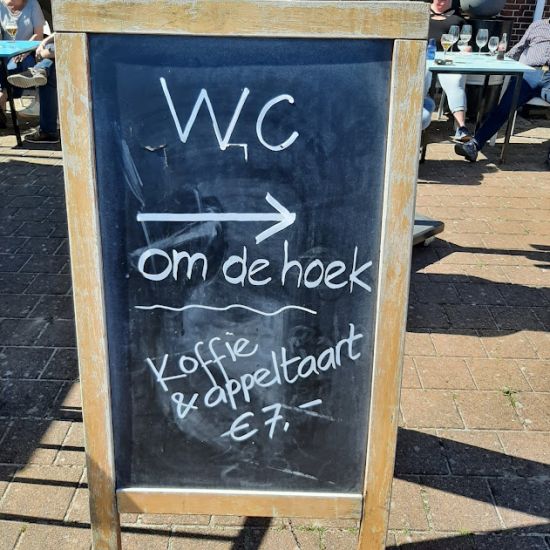 WC
om de hoek
Koffie
& appeltaart
€7,-